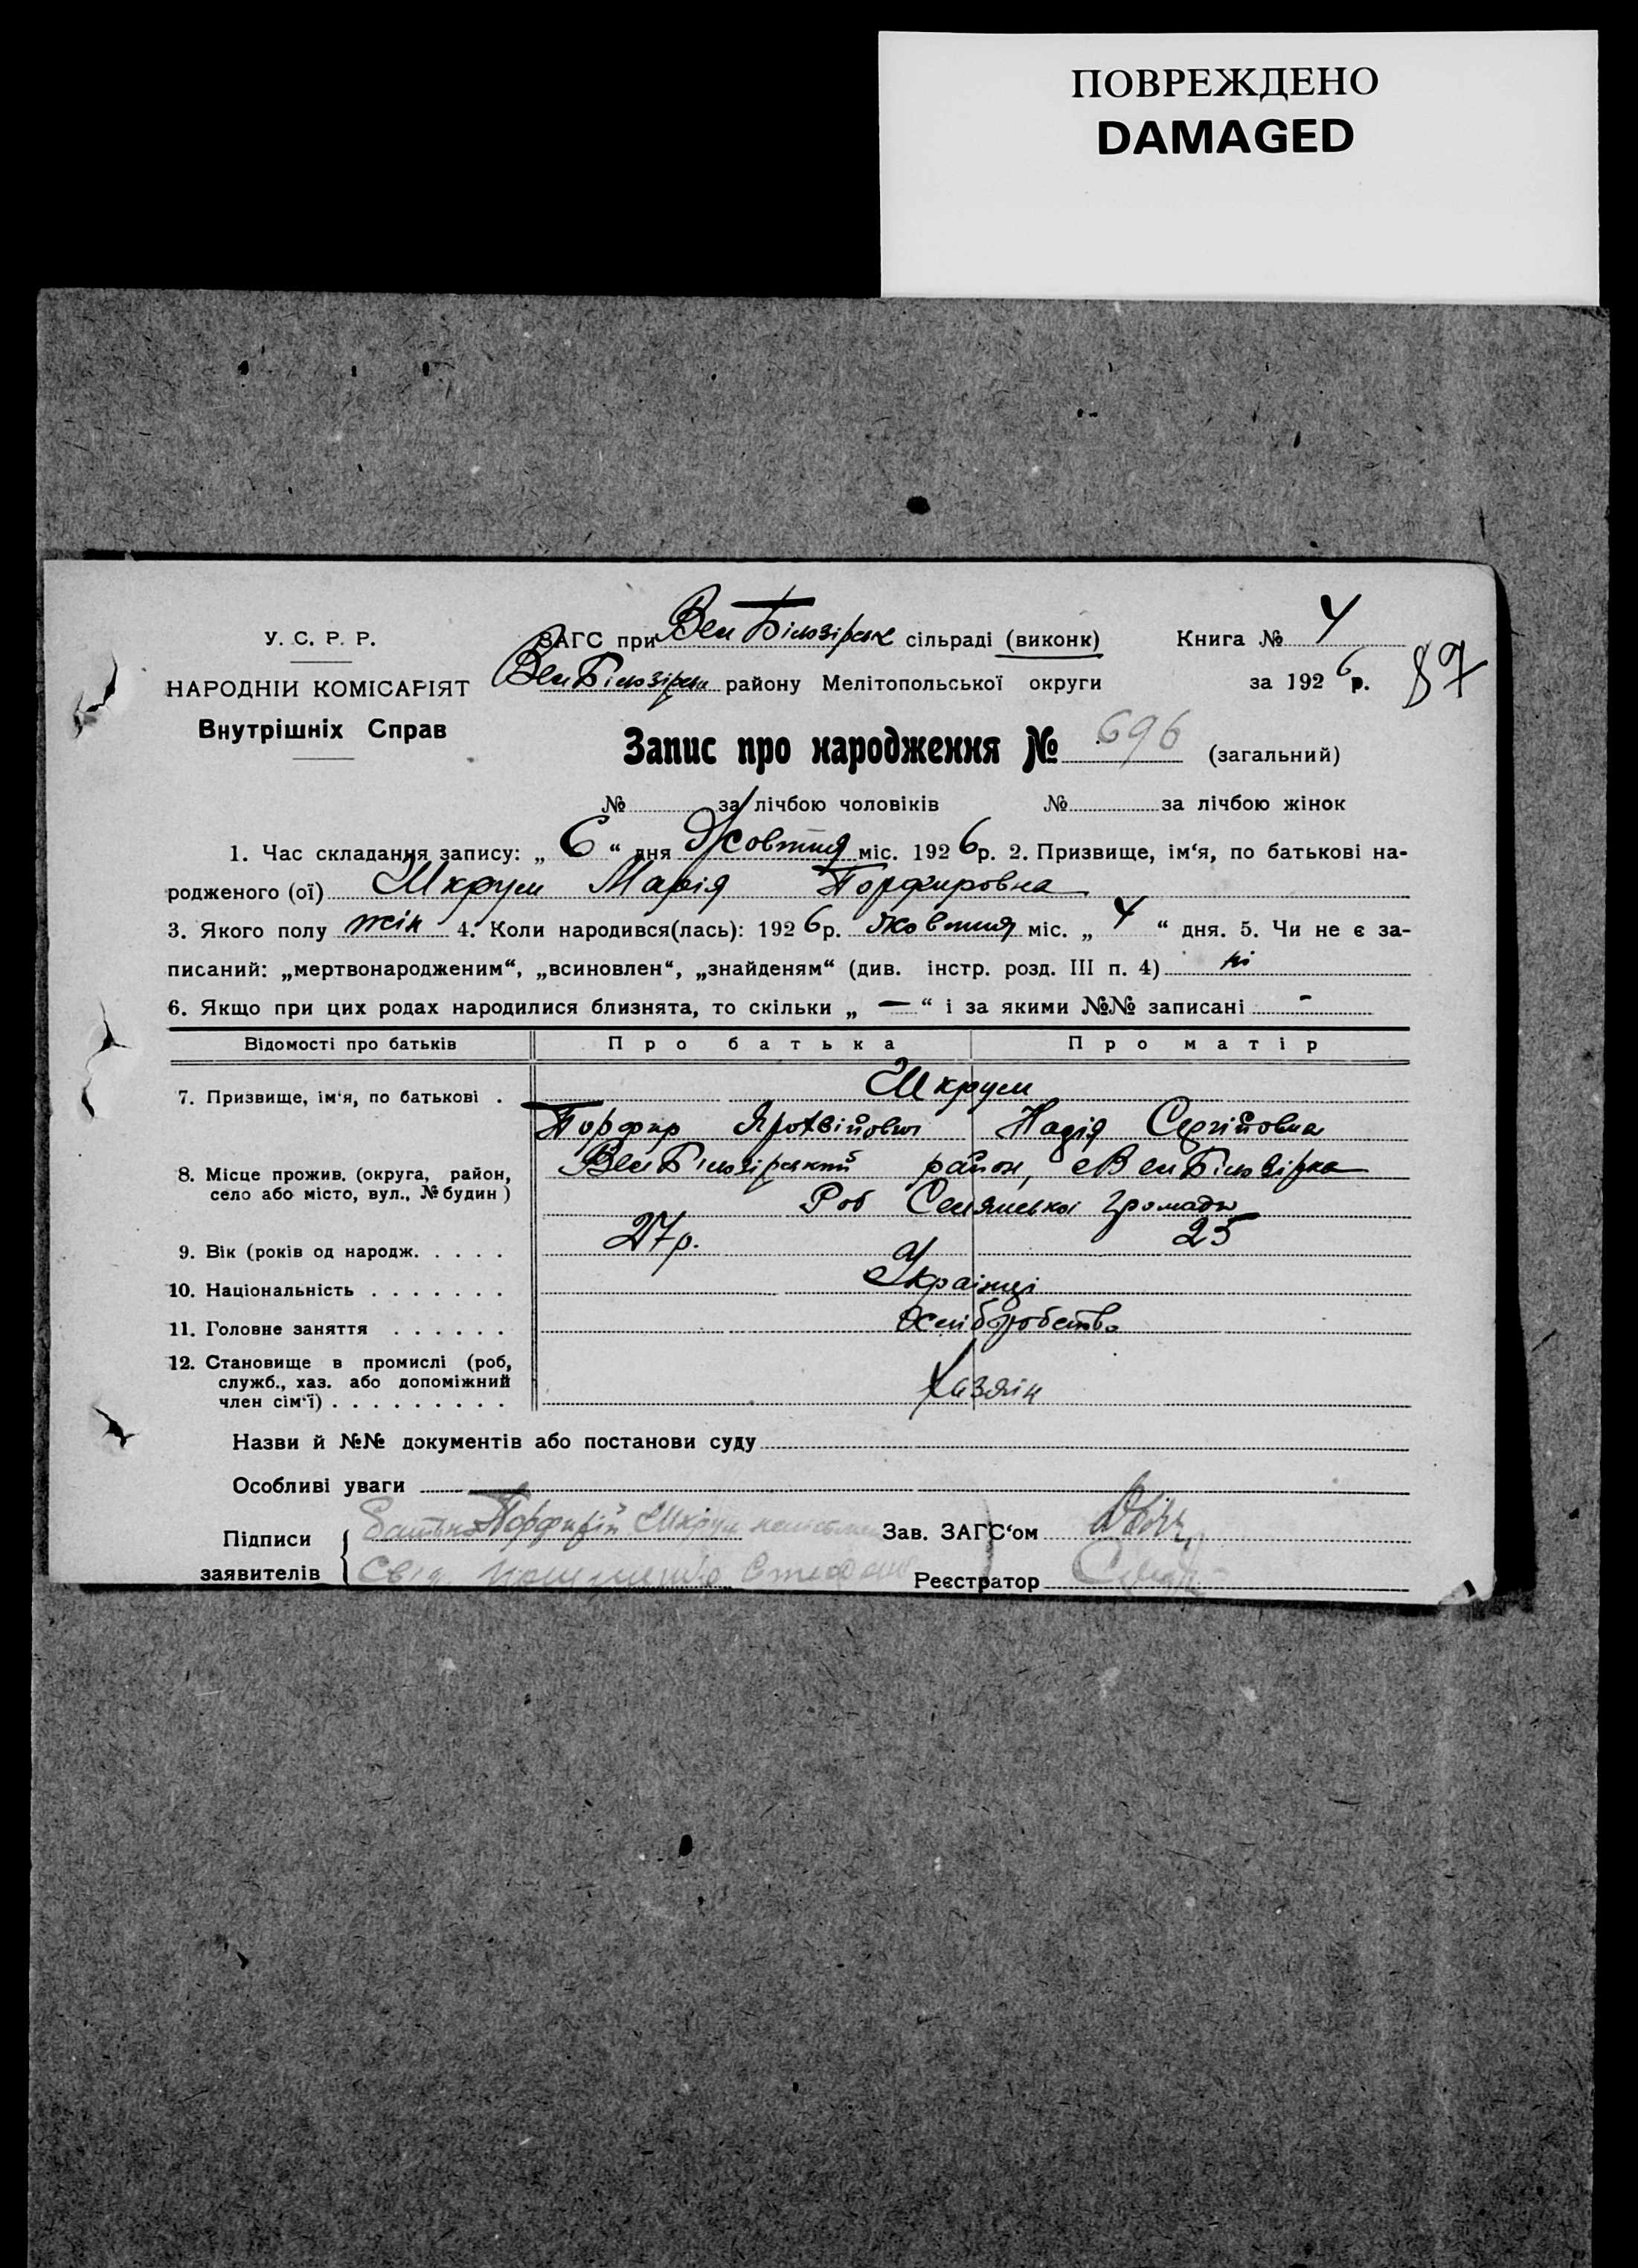 ПОВРЕЖДЕНО
DAMAGED
У. С. Р. Р.
НАРОДНІЙ КОМІСАРІЯТ
Внутрішніх Справ
ЗАГС при Вел Білозірськ сільраді (виконк)
Вел Білозірськ району Мелітопольської округи
Книга № 4
за 1926 р.
87
Запис про народження № 696 (загальний)
№ за лічбою чоловіків № за лічбою жінок
1. Час складання запису: „ 6 “ дня Жовтня міс. 1926 р. 2. Призвище, ім‘я, по батькові на-
родженого (ої) Шкрум Марія Порфировна
3. Якого полу жін 4. Коли народився(лась): 1926 р. жовтня міс. „ 4 “ дня. 5. Чи не є за-
писаний: „мертвонародженим“, „всиновлен“, „знайденям“ (див. інстр. розд. III п. 4) ні
6. Якщо при цих родах народилися близнята, то скільки „ — “ і за якими №№ записані -
Відомості про батьків Про батька Про матір
7. Призвище, ім‘я, по батькові . Шкрум
Порфир Надія Сергійовна
8. Місце прожив. (округа, район,
село або місто, вул., № будин)
Вел Білозірський район, с Вел Білозірка
громади
9. Вік (років од народж. . . . . 27 р. 25
10. Національність . . . . . . . Українці
11. Головне заняття . . . . . . Хліборобство
12. Становище в промислі (роб,
служб., хаз. або допоміжний
член сім‘ї) . . . . . . . . . Хазяїн
Назви й №№ документів або постанови суду
Особливі уваги —
Підписи
заявителів
Батько Порфирій Шкрум
Свід.
Зав. ЗАГС‘ом
Реєстратор